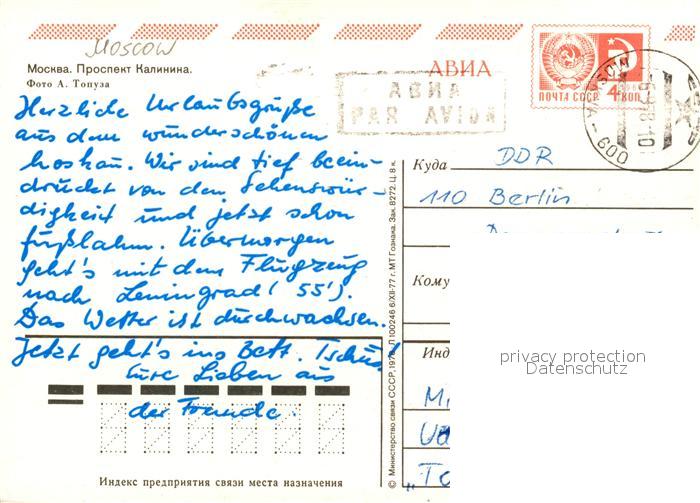 MOSCOW
Москва. Проспект Калинина.
Фото А. Топуза
АВИА
АВИА
PAR AVION
ПОЧТА СССР 4 КОП
Herzliche Urlaubsgrüße
aus dem wunderschönen
Moskau. Wir sind tief beein-
druckt von den Sehenswür-
digkeit und jetzt schon
fußlahm. Übermorgen
geht's mit dem Flugzeug
nach Leningrad (55').
Das Wetter ist durchwachsen.
Jetzt geht's ins Bett. Tschüß!
Eure Lieben aus
der Fremde.
Куда
DDR
110 Berlin
Кому
Инд
privacy protection
Datenschutz
Индекс предприятия связи места назначения
© Министерство связи СССР, 1978. Л 100246 6/XII-77 г. МТ Гознака. Зак. 8272. Ц. 8 к.